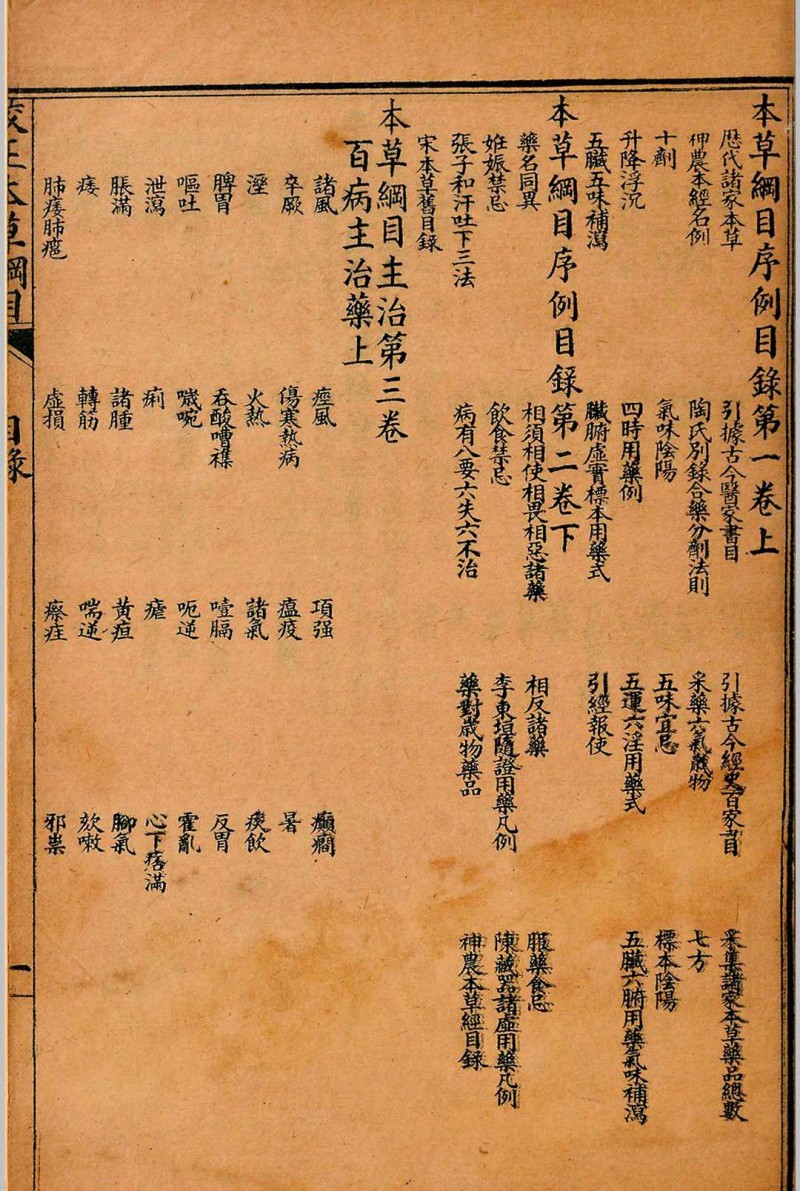 本草綱目序例目錄第一卷上
歷代諸家本草　引據古今醫家書目　引據古今經史百家書目　采集諸家本草藥品總數
神農本經名例　陶氏別錄合藥分劑法則　采藥六氣歲物　七方
十劑　氣味陰陽　五味宜忌　標本陰陽
升降浮沉　四時用藥例　五運六淫用藥式　五臟六腑用藥氣味補瀉
五臟五味補瀉　臟腑虛實標本用藥式　引經報使
本草綱目序例目錄第二卷下
藥名同異　相須相使相畏相惡諸藥　相反諸藥　服藥食忌
妊娠禁忌　飲食禁忌　李東垣隨證用藥凡例　陳藏器諸虛用藥凡例
張子和汗吐下三法　病有八要六失六不治　藥對歲物藥品　神農本草經目錄
宋本草舊目錄
本草綱目主治第三卷
百病主治藥上
諸風　痙風　項强　癲癎
卒厥　傷寒熱病　瘟疫　暑
溼　火熱　諸氣　痰飲
脾胃　吞酸嘈襍　噎膈　反胃
嘔吐　噦啘　呃逆　霍亂
泄瀉　痢　瘧　心下痞滿
脹滿　諸腫　黃疸　腳氣
痿　轉筋　喘逆　欬嗽
肺痿肺癰　虛損　瘵疰　邪祟
校正本草綱目　目錄　一